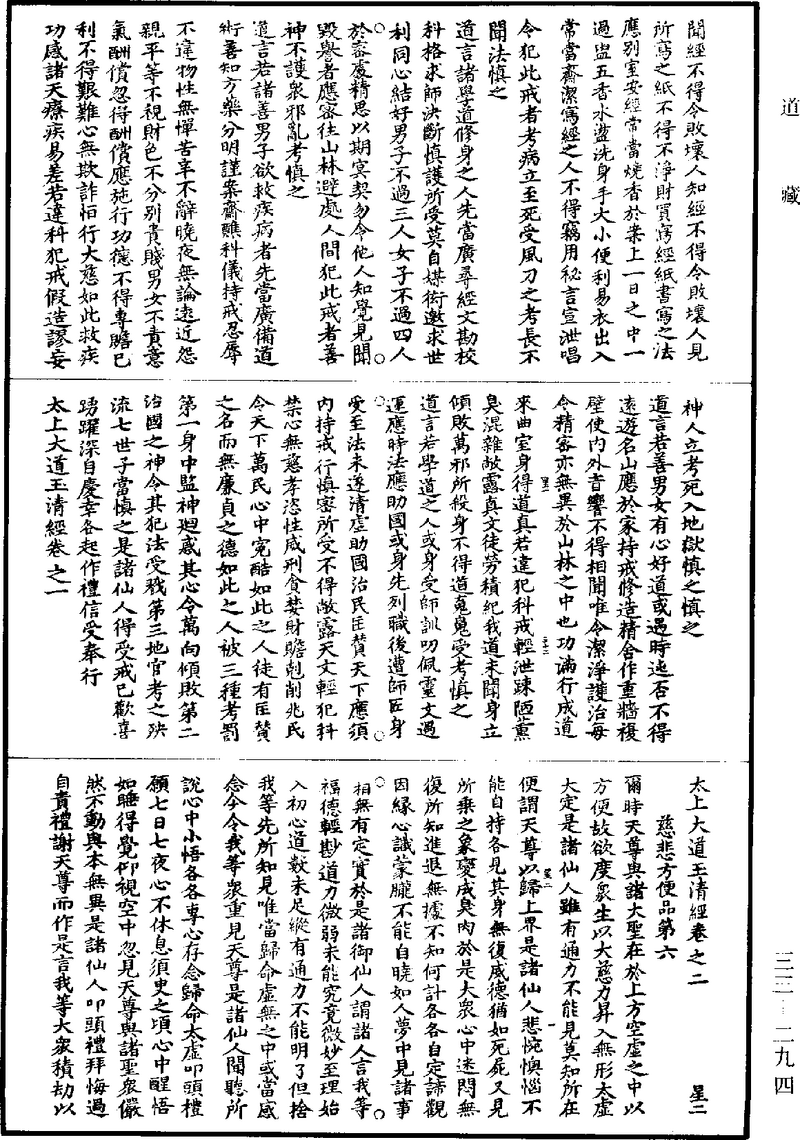 道藏
聞經不得令敗壞人知經不得令敗壞人見
所寫之紙不得不淨財買寫經紙書寫之法
應別室安經常當燒香於案上一日之中一
過盥五香水盪洗身手大小便利易衣出入
常當齋潔寫經之人不得竊用秘言宣泄唱
令犯此戒者考病立至死受風刀之考長不
聞法慎之
道言諸學道修身之人先當廣尋經文勘校
科格求師決斷慎護所受莫自媒衒邀求世
利同心結好男子不過三人女子不過四人
於密處精思以期冥契勿令他人知覺見聞
毀譽者應密往山林避處人間犯此戒者善
神不護眾邪亂考慎之
道言若諸善男子欲救疾病者先當廣備道
術善知方藥分明謹案齋醮科儀持戒忍辱
不違物性無憚苦辛不辭曉夜無論遠近怨
親平等不視財色不分別貴賤男女不責意
氣酬償忽得酬償應施行功德不得專贍已
利不得艱難心無欺詐恒行大慈如此救疾
功感諸天療疾易差若違科犯戒假造謬妄
神人立考死入地獄慎之慎之
道言若善男女有心好道或遇時迍否不得
遠遊名山應於家持戒修造精舍作重牆複
壁使內外音響不得相聞唯令潔淨護治每
令精密亦無異於山林之中也功滿行成道
來曲室身得道真若違犯科戒輕泄踈陋薰
臭混雜敞露真文徒勞積紀我道未聞身立
傾敗萬邪所殺身不得道䰟鬼受考慎之
道言若學道之人或身受師訓叨佩靈文過
運應時法應助國或身先列職後遭師匠身
受至法未遂清虛助國治民匡贊天下應須
內持戒行慎密所受不得敞露天文輕犯科
禁心無慈孝恣性威刑貪婪財贍剋削兆民
令天下萬民心中寃酷如此之人徒有匡贊
之名而無廉貞之德如此之人被三種考罰
第一身中監神迴惑其心令萬向傾敗第二
治國之神令其犯法受戮第三地官考之殃
流七世子當慎之是諸仙人得受戒已歡喜
踴躍深自慶幸各起作禮信受奉行
太上大道玉清經卷之一
太上大道玉清經卷之二
星二
慈悲方便品第六
爾時天尊與諸大聖在於上方空虛之中以
方便故欲度眾生以大慈力昇入無形太虛
大定是諸仙人雖有通力不能見莫知所在
便謂天尊以歸上界是諸仙人悲惋懊惱不
能自持各見其身無復威德猶如死屍又見
所乘之象變成臭肉於是大眾心中迷悶無
復所知進退無據不知何計各各自定諦觀
因緣心識蒙朧不能自曉如人夢中見諸事
相無有定實於是諸御仙人謂諸人言我等
福德輕尠道力微弱未能究竟微妙至理始
入初心道數未足縱有通力不能明了但捨
我等先所知見唯當歸命虛無之中或當感
念今令我等眾重見天尊是諸仙人聞聽所
說心中小悟各各專心存念歸命太虛叩頭禮
願七日七夜心不休息須臾之頃心中醒悟
如睡得覺仰視空中忽見天尊與諸聖眾儼
然不動與本無異是諸仙人叩頭禮拜悔過
自責禮謝天尊而作是言我等大眾積劫以
三三—二九四